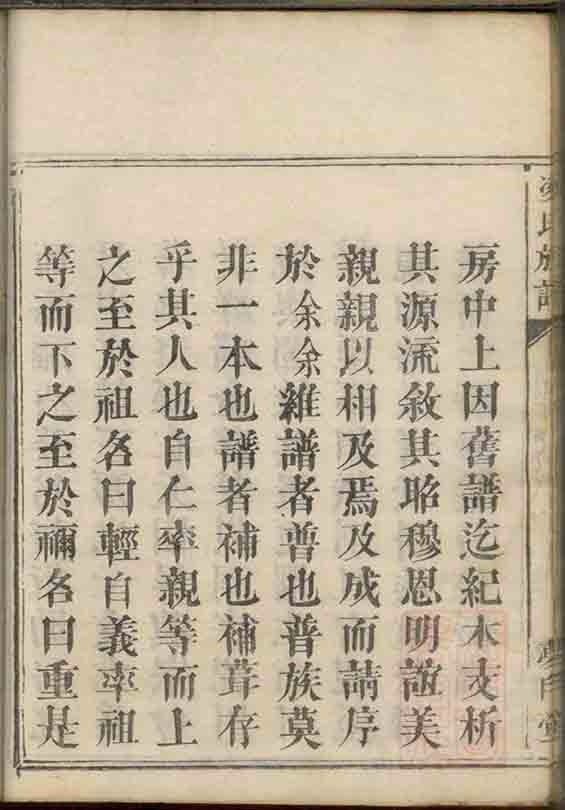 房中上因舊譜迄紀本支析
其源流敘其昭穆恩明誼美
親親以相及焉及成而請序
於余余維譜者普也普族莫
非一本也譜者補也補葺存
乎其人也自仁率親等而上
之至於祖名曰輕自義率祖
等而下之至於禰名曰重是